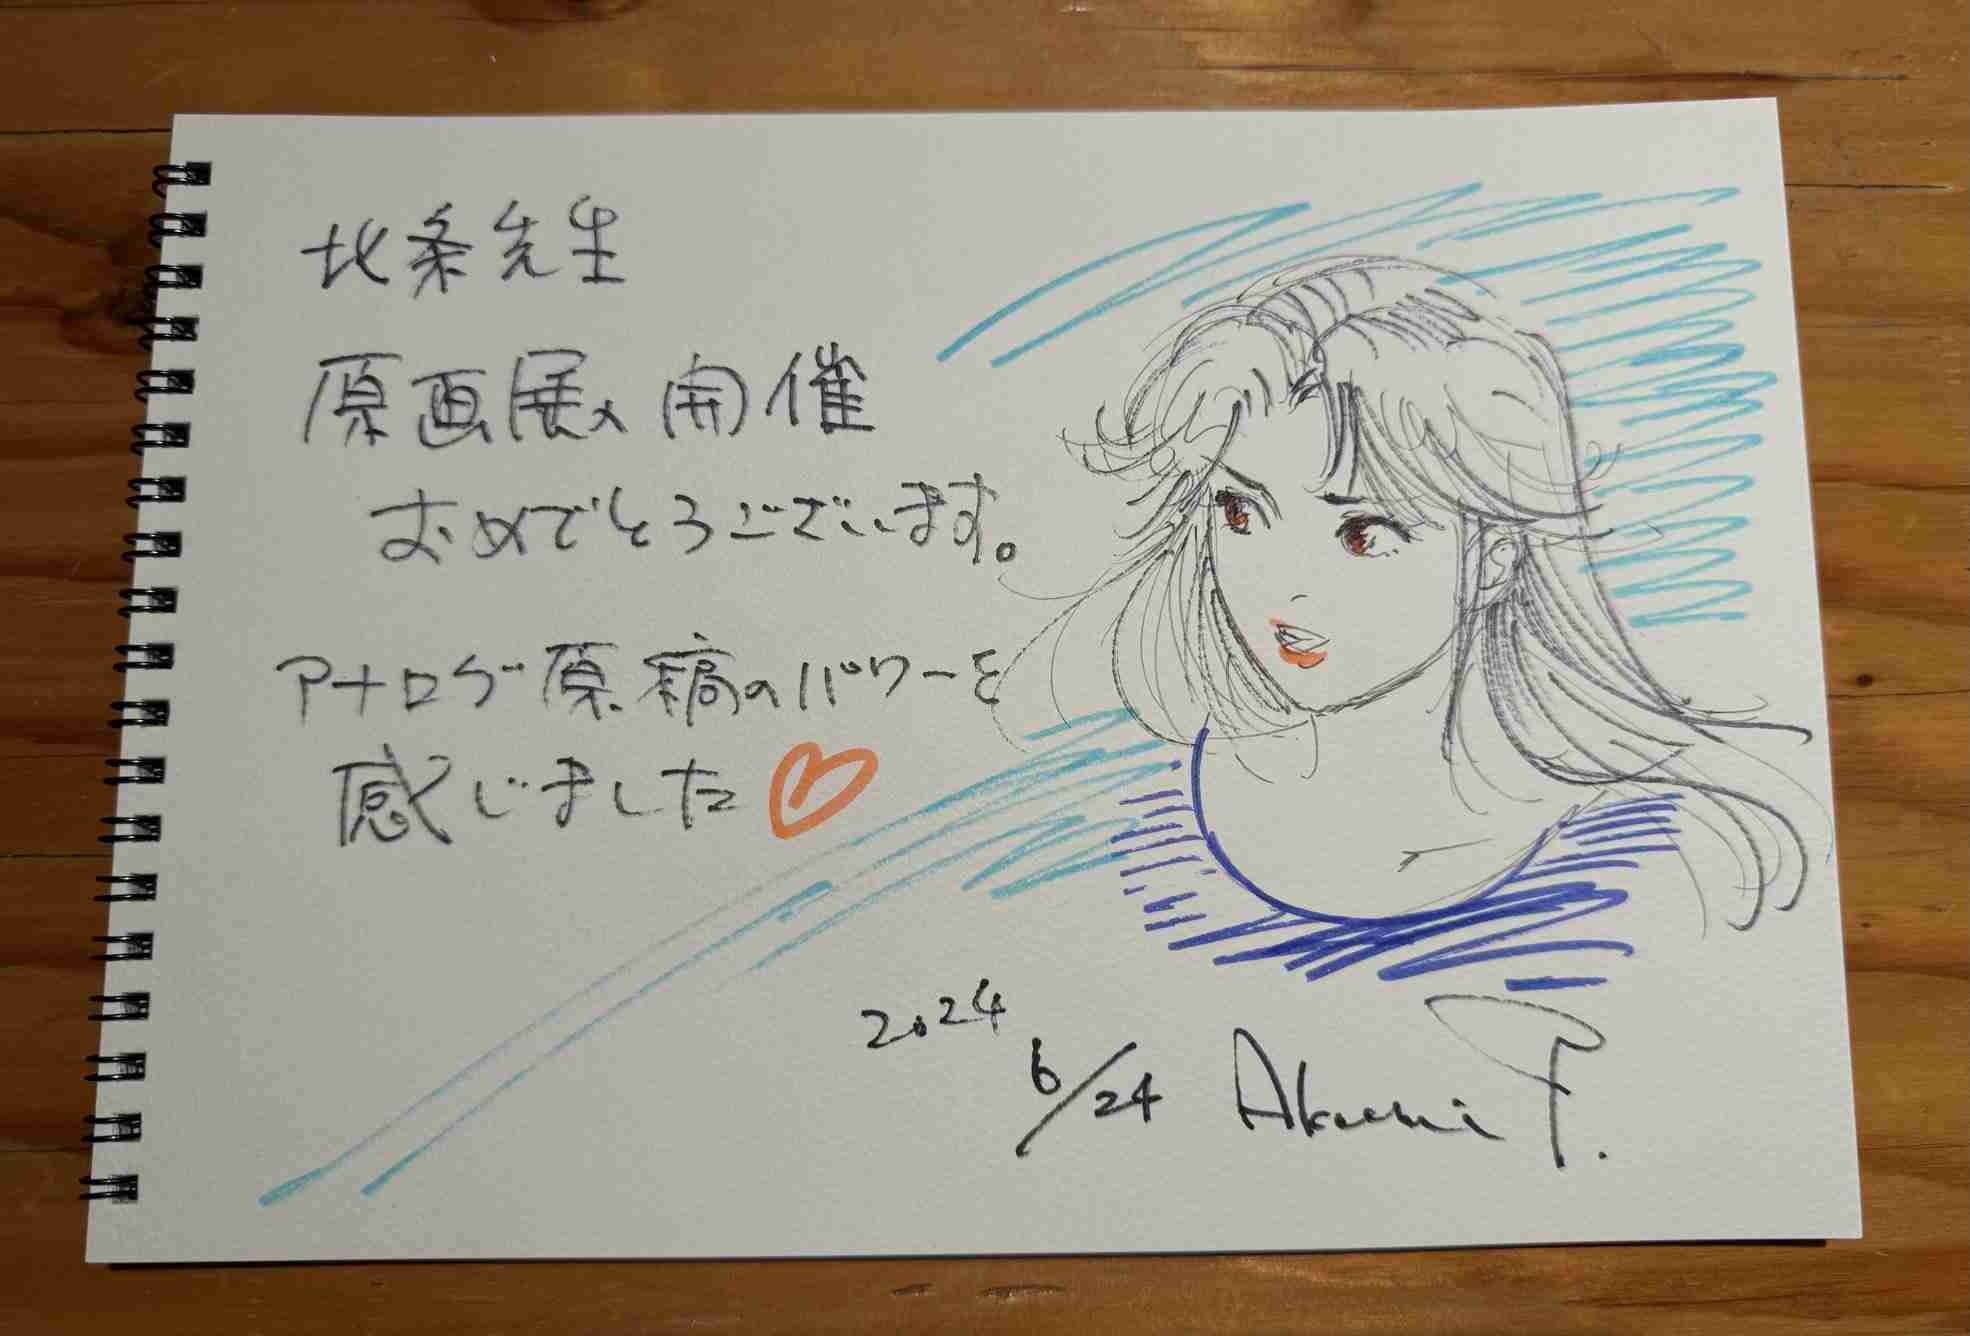 北条先生
原画展開催
おめでとうございます。
アナログ原稿のパワーを
感じました
2024
6/24 Akemi T.